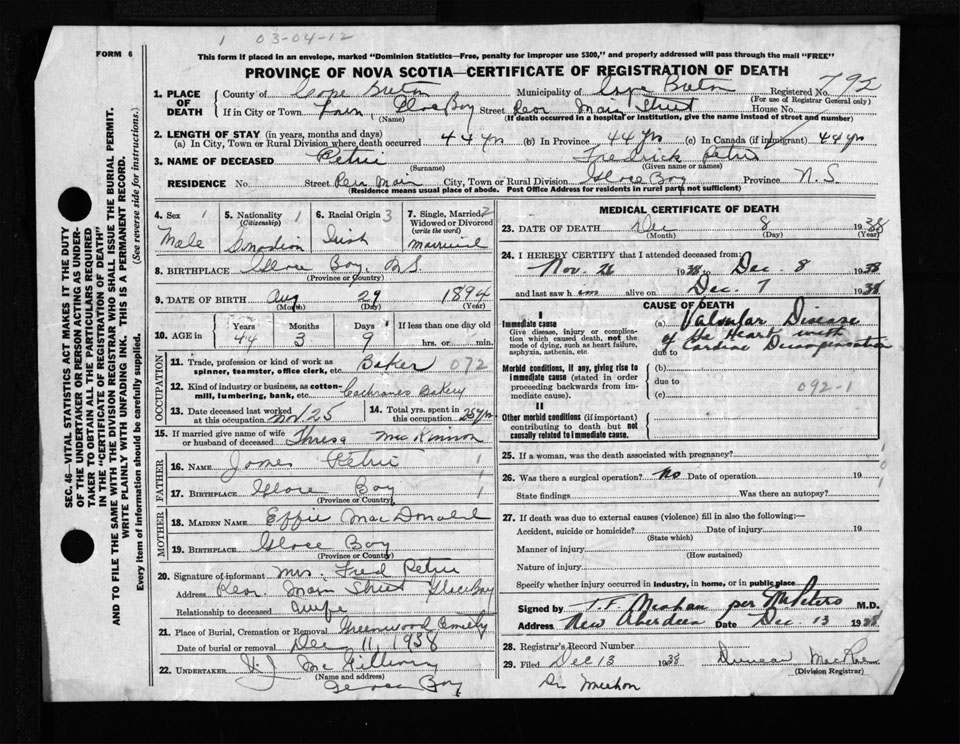 1 03-04-12
FORM 6
This form if placed in an envelope, marked "Dominion Statistics—Free, penalty for improper use $300," and properly addressed will pass through the mail "FREE"
PROVINCE OF NOVA SCOTIA—CERTIFICATE OF REGISTRATION OF DEATH
1. PLACE OF DEATH County of Cape Breton Municipality of Cape Breton Registered No. 792
(For use of Registrar General only)
If in City or Town Town, Glace Bay Street Rear Main Street House No.
(Name) (If death occurred in a hospital or institution, give the name instead of street and number)
2. LENGTH OF STAY (in years, months and days)
(a) In City, Town or Rural Division where death occurred 44 yrs (b) In Province 44 yrs (c) In Canada (if immigrant) 44 yrs
3. NAME OF DECEASED Petrie Fredrick Petrie
(Surname) (Given name or names)
RESIDENCE No. Street Rear Main City, Town or Rural Division Glace Bay Province N.S.
(Residence means usual place of abode. Post Office Address for residents in rural parts not sufficient)
4. Sex 1 Male
5. Nationality 1 (Citizenship) Canadian
6. Racial Origin 3 Irish
7. Single, Married, 2 Widowed or Divorced (write the word) married
8. BIRTHPLACE Glace Bay, N.S.
(Province or Country)
9. DATE OF BIRTH Aug 29 1894
(Month) (Day) (Year)
10. AGE in Years 44 Months 3 Days 9 If less than one day old hrs. or min.
OCCUPATION
11. Trade, profession or kind of work as spinner, teamster, office clerk, etc. Baker 072
12. Kind of industry or business, as cotton-mill, lumbering, bank, etc. Cochranes Bakery
13. Date deceased last worked at this occupation Nov. 25
14. Total yrs. spent in this occupation 25 yrs
15. If married give name of wife or husband of deceased Thresa MacKinnon
FATHER
16. NAME James Petrie 1
17. BIRTHPLACE Glace Bay 1
(Province or Country)
MOTHER
18. MAIDEN NAME Effie MacDonald
19. BIRTHPLACE Glace Bay
(Province or Country)
20. Signature of informant Mrs. Fred Petrie
Address Rear Main Street Glace Bay
Relationship to deceased Wife
21. Place of Burial, Cremation or Removal Greenwood Cemetery
Date of burial or removal Dec 11, 1938
22. UNDERTAKER V.J. McGillivary
(Name and address)
Glace Bay
MEDICAL CERTIFICATE OF DEATH
23. DATE OF DEATH Dec 8 1938
(Month) (Day) (Year)
24. I HEREBY CERTIFY that I attended deceased from:
Nov. 26 1938 to Dec. 8 1938
and last saw him alive on Dec. 7 1938
CAUSE OF DEATH
I
Immediate cause
Give disease, injury or complication which caused death, not the mode of dying, such as heart failure, asphyxia, asthenia, etc
(a) Valvular Disease
of the Heart with
due to Cardiac Decompensation
Morbid conditions, if any, giving rise to immediate cause (stated in order proceeding backwards from immediate cause).
(b)
due to
(c) 092-1
II
Other morbid conditions (if important) contributing to death but not causally related to immediate cause.
25. If a woman, was the death associated with pregnancy?
26. Was there a surgical operation? No Date of operation 19
State findings Was there an autopsy?
27. If death was due to external causes (violence) fill in also the following:—
Accident, suicide or homicide? Date of injury 19
(State which)
Manner of injury
(How sustained)
Nature of injury
Specify whether injury occurred in industry, in home, or in public place
Signed by T.F. Meahan per M.D.
Address New Aberdeen Date Dec. 13 1938
28. Registrar's Record Number
29. Filed Dec 13 1938 Duncan MacRae
(Division Registrar)
Dr. Meehan
SEC. 46—VITAL STATISTICS ACT MAKES IT THE DUTY
OF THE UNDERTAKER OR PERSON ACTING AS UNDER-
TAKER TO OBTAIN ALL THE PARTICULARS REQUIRED
IN THE "CERTIFICATE OF REGISTRATION OF DEATH"
AND TO FILE THE SAME WITH THE DIVISION REGISTRAR WHO SHALL ISSUE THE BURIAL PERMIT.
WRITE PLAINLY WITH UNFADING INK. THIS IS A PERMANENT RECORD.
Every item of information should be carefully supplied. (See reverse side for instructions.)